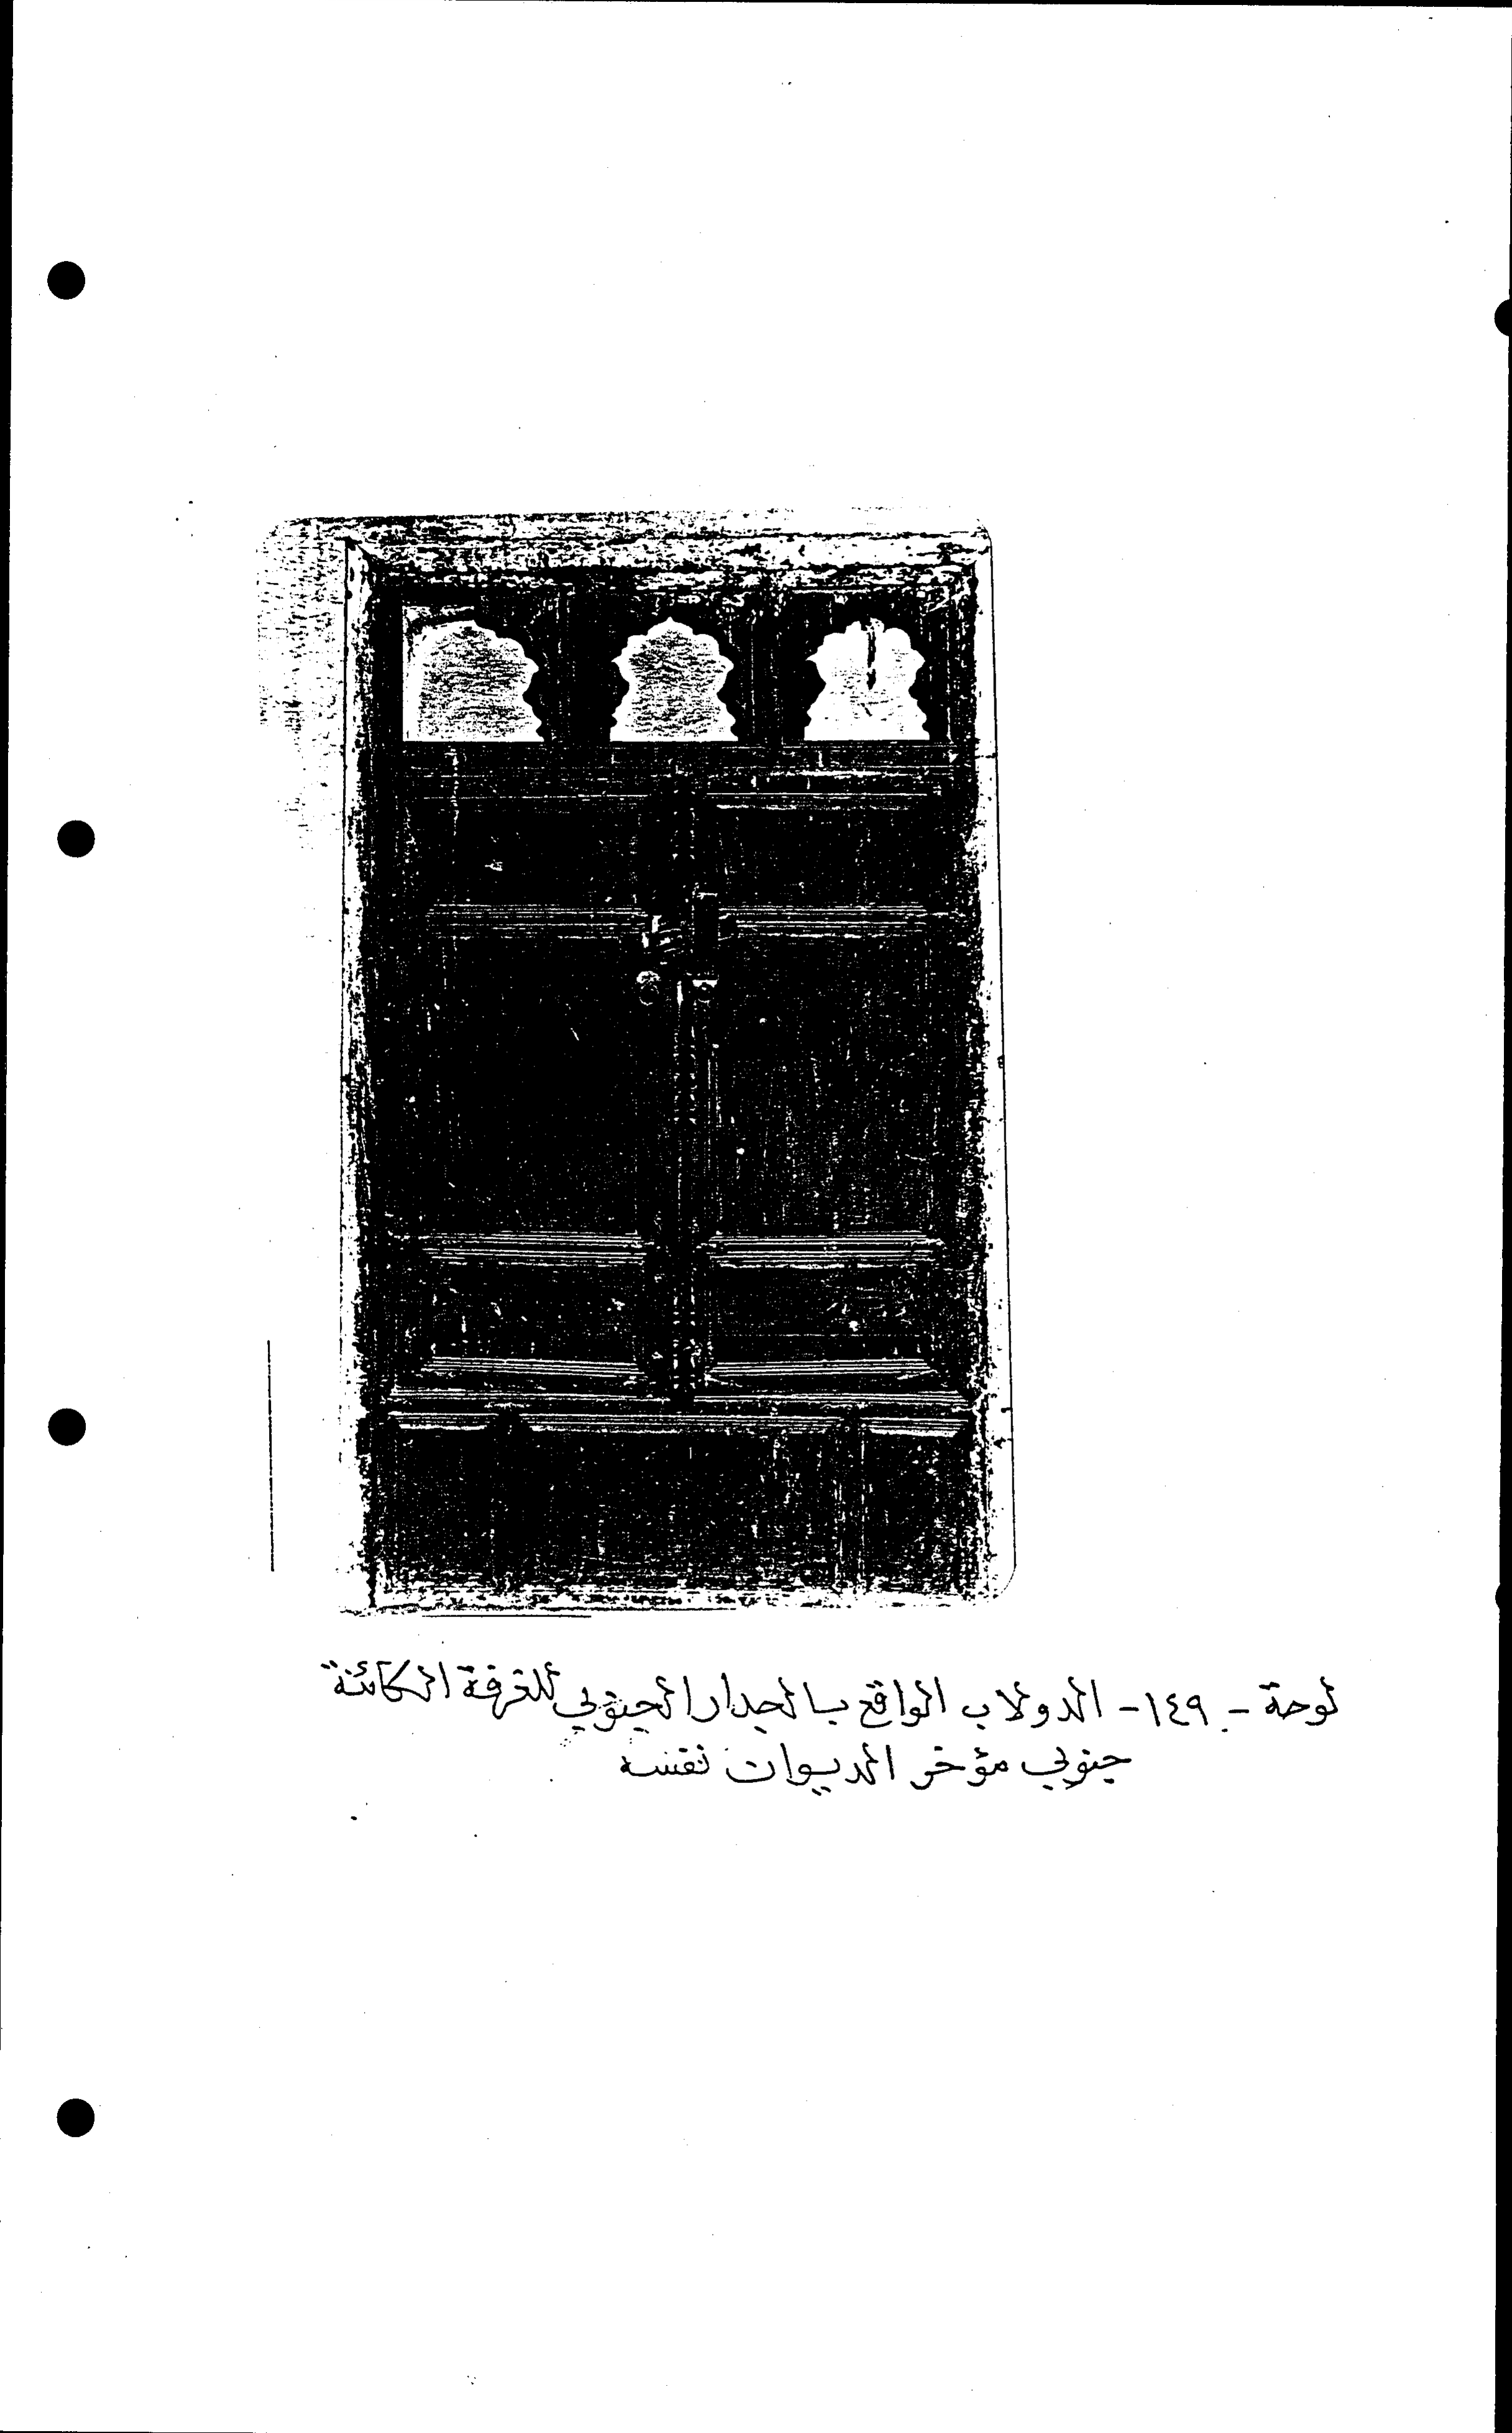 لوحة - ١٤٩ - الدولاب الواقع بالجدار الجنوبي للغرفة الكائنة
جنوبي مؤخر الديوان نفسه